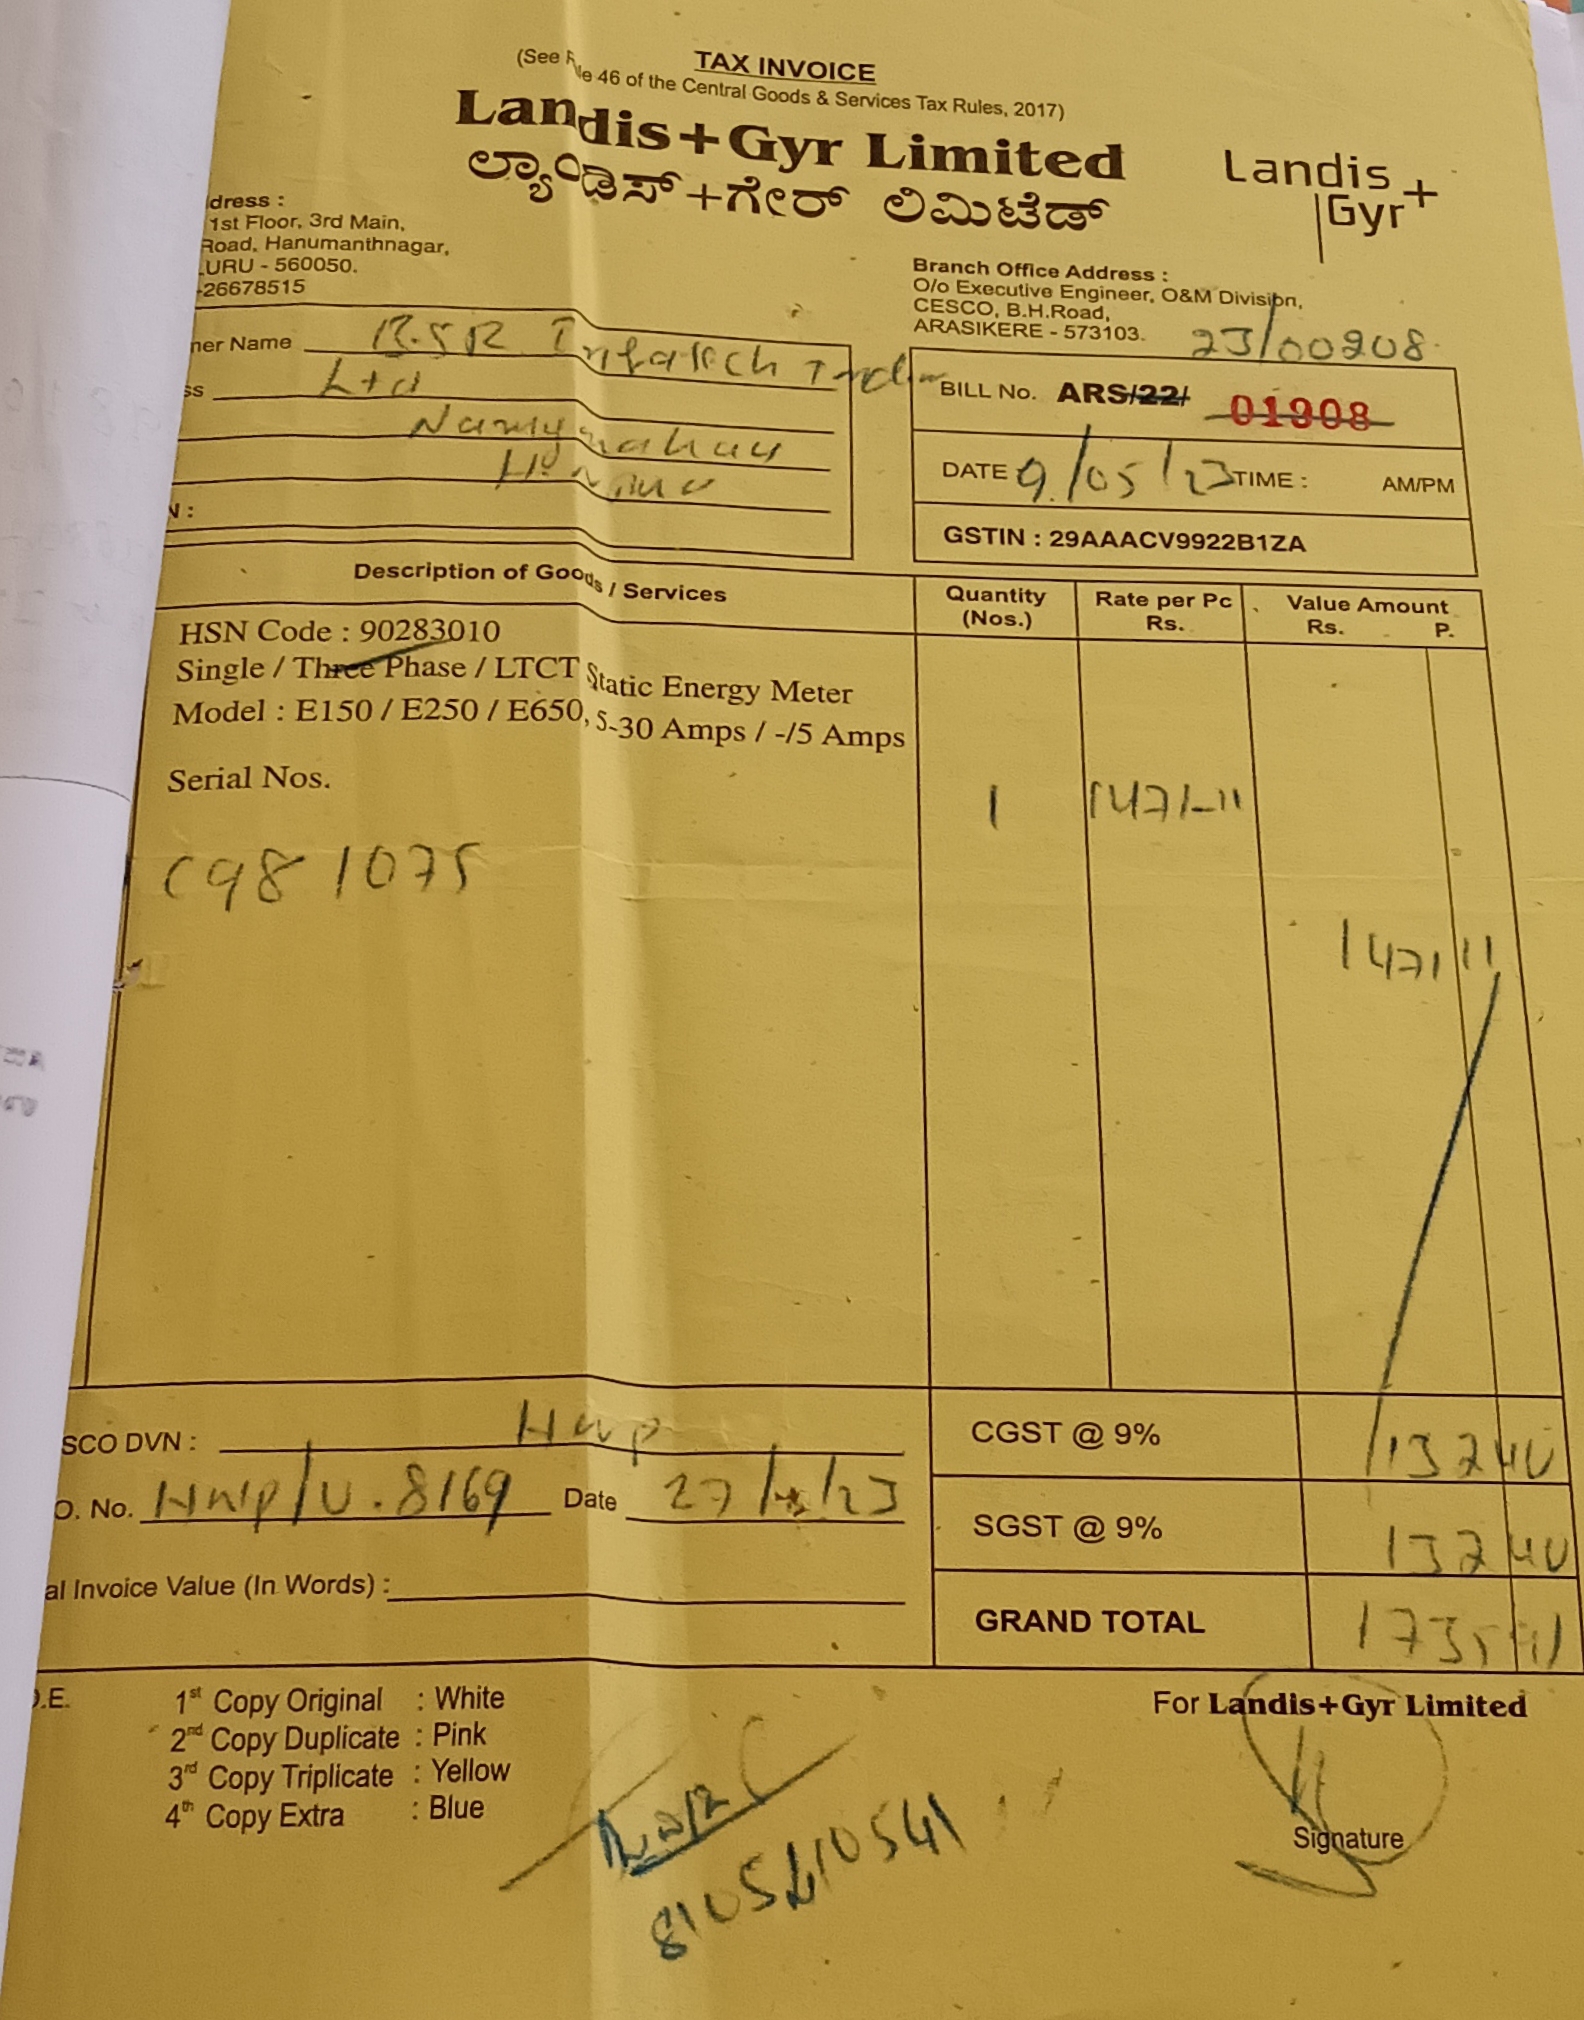 TAX INVOICE
(See Rule 46 of the Central Goods & Services Tax Rules, 2017)
Landis+Gyr Limited
ಲ್ಯಾಂಡಿಸ್+ಗೇರ್ ಲಿಮಿಟೆಡ್
Landis
Gyr+
dress :
1st Floor, 3rd Main,
Road, Hanumanthnagar,
URU - 560050.
-26678515
Branch Office Address :
O/o Executive Engineer, O&M Division,
CESCO, B.H.Road,
ARASIKERE - 573103.
23/00908
ner Name R.S.R Infratech India
ss Ltd
N :
BILL No. ARS/22/ 01908
DATE 9/05/23 TIME : AM/PM
GSTIN : 29AAACV9922B1ZA
Description of Goods / Services Quantity (Nos.) Rate per Pc Rs. Value Amount Rs. P.
HSN Code : 90283010
Single / Three Phase / LTCT Static Energy Meter
Model : E150 / E250 / E650, 5-30 Amps / -/5 Amps
Serial Nos.
1 1471-11
C981075
1471 11
SCO DVN : HNP
CGST @ 9% 132 40
O. No. HNP/U.8169 Date 27/ /23
SGST @ 9% 132 40
al Invoice Value (In Words) :
GRAND TOTAL 1735 91
O.E.
1st Copy Original : White
2nd Copy Duplicate : Pink
3rd Copy Triplicate : Yellow
4th Copy Extra : Blue
For Landis+Gyr Limited
Signature
8105410541